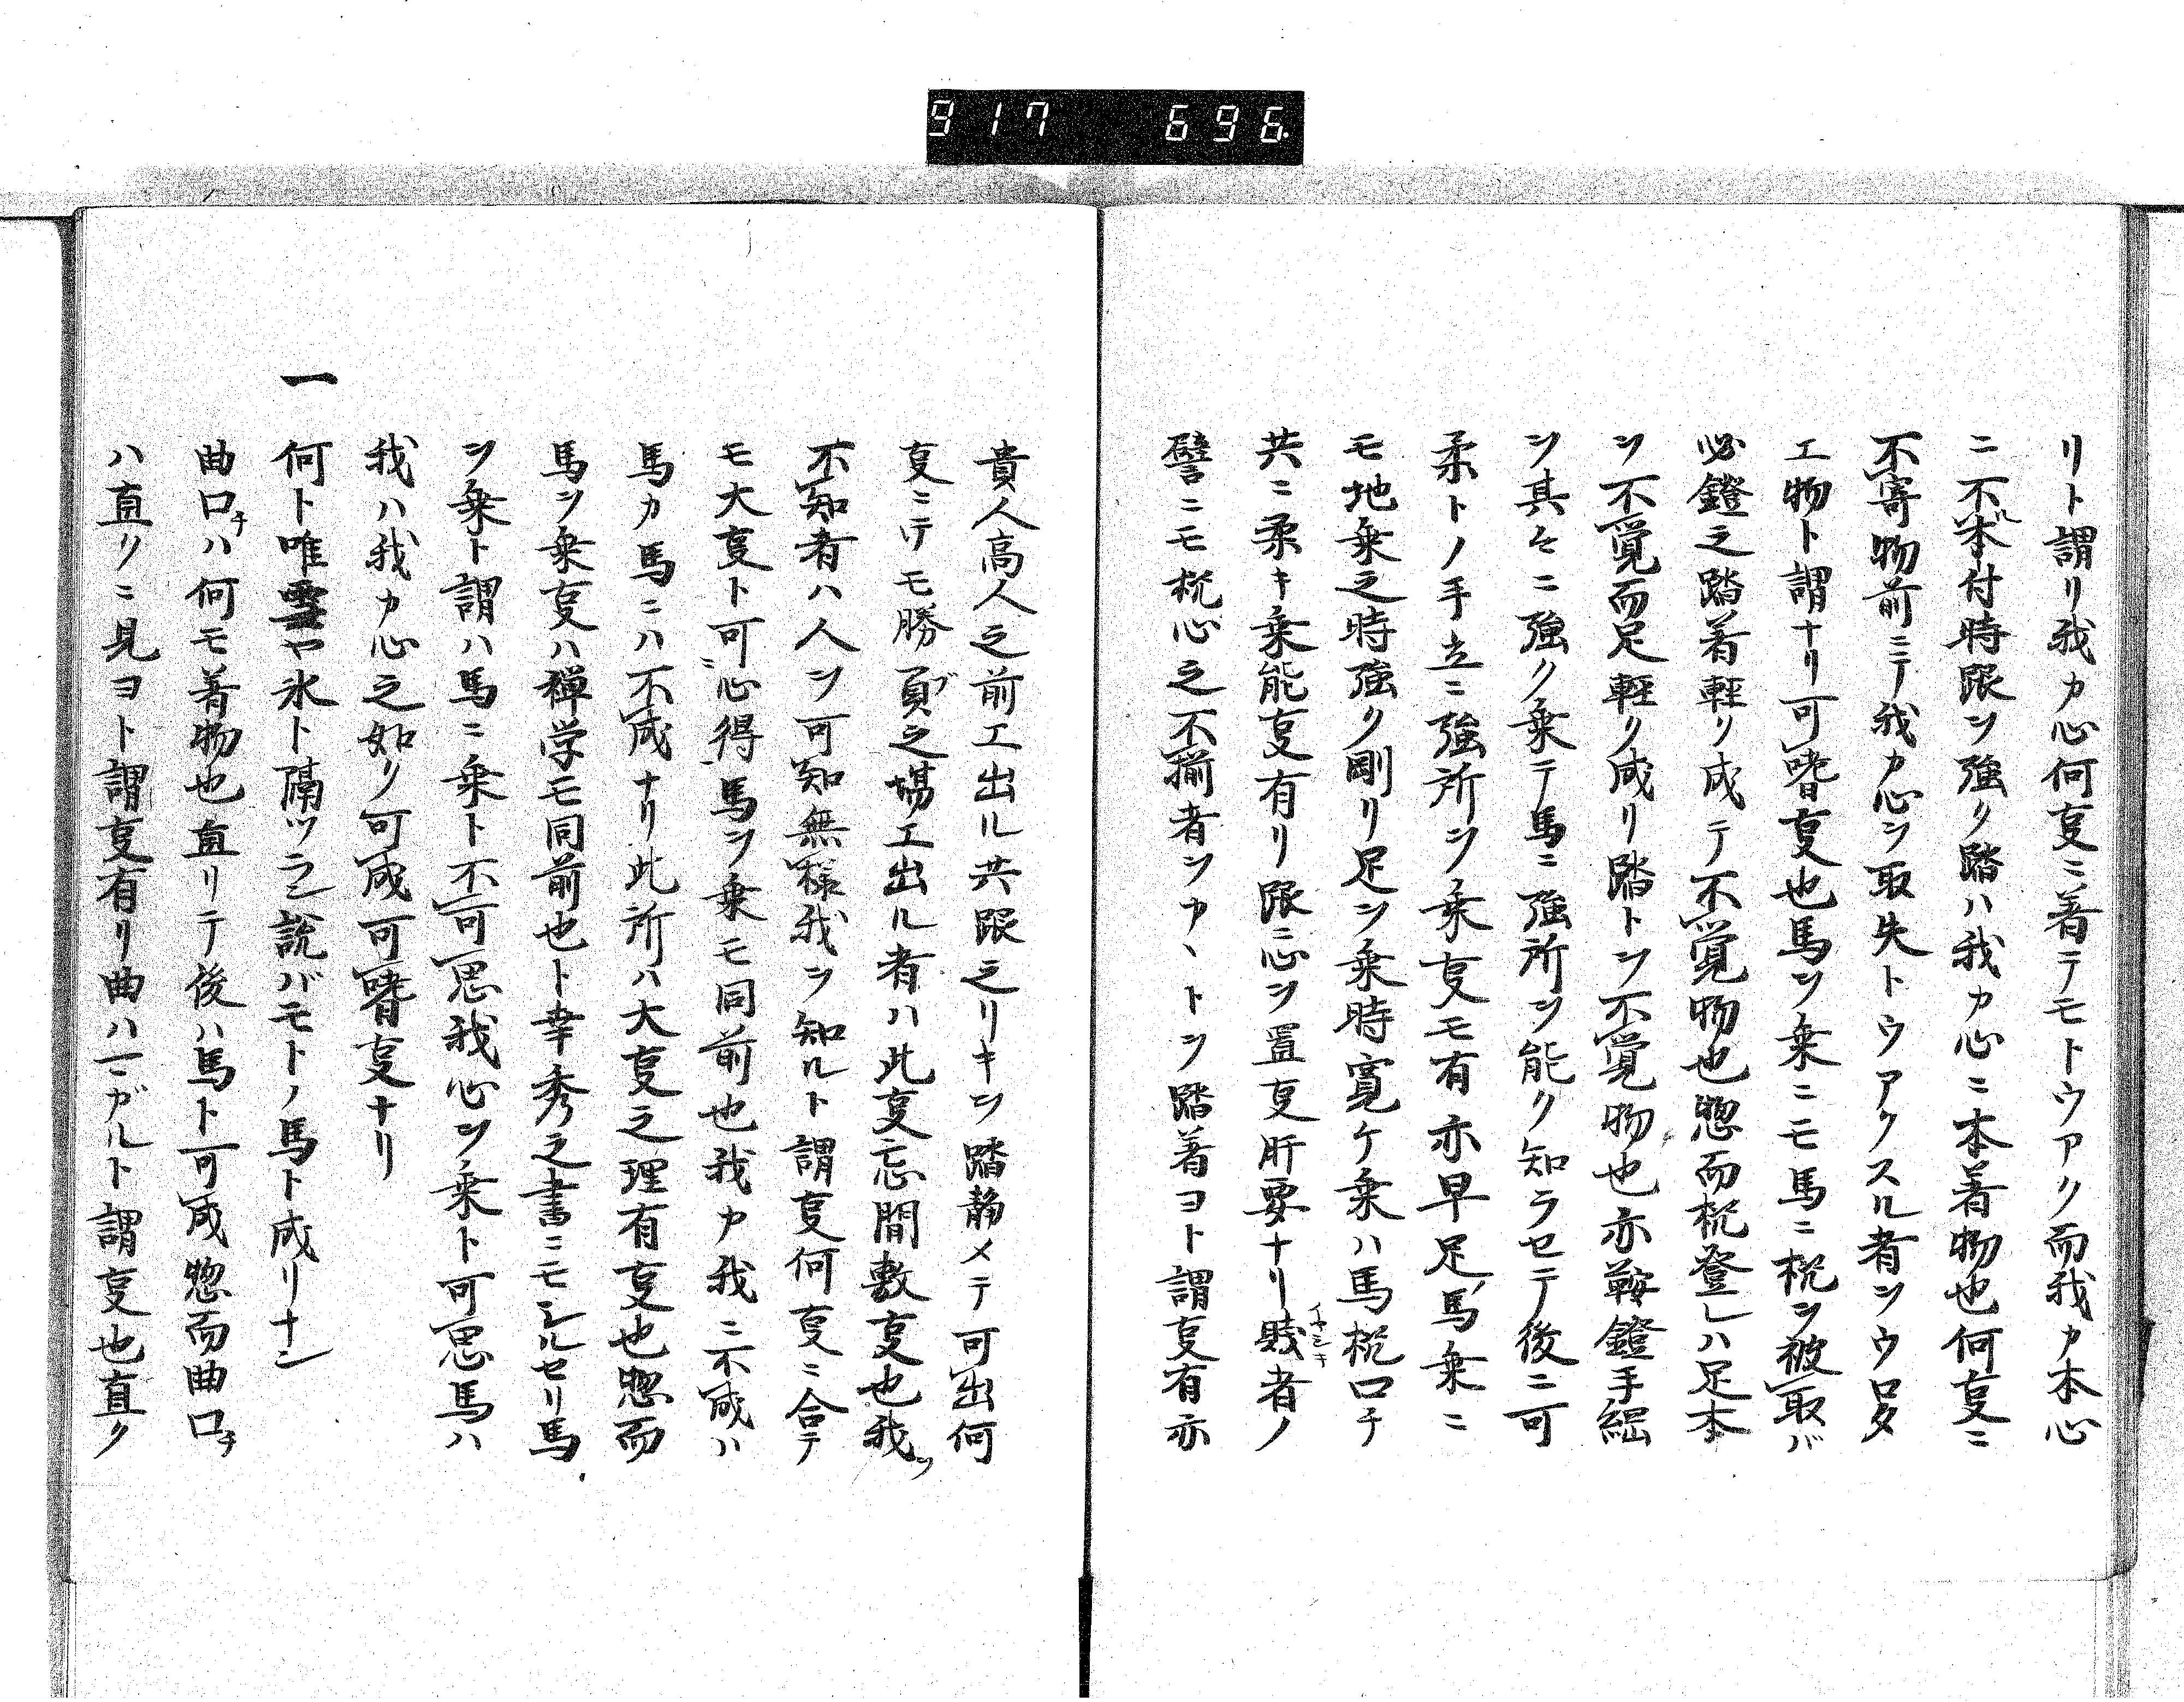 917 696.
リト謂リ我カ心何㕝ニ着テモトウアク而我カ本心
ニ不本付時跟ヲ強ク踏ハ我カ心ニ本着物也何㕝ニ
不寄物前ニテ我カ心ヲ取失トウアクスル者ヲウロタ
エ物ト謂ナリ可嗜㕝也馬ヲ乗ニモ馬ニ梲ヲ被取バ
必鐙之踏着軽ク成テ不覚物也惣而梲登レハ足本
ヲ不覚而足軽ク成リ踏トヲ不覚物也亦鞍鐙手綱
ヲ其々ニ強ク乗テ馬ニ強所ヲ能ク知ラセテ後ニ可
柔トノ手立ニ強所ヲ乗㕝モ有亦早足馬乗ニ
モ地乗之時強ク剛リ足ヲ乗時寛ケ乗ハ馬梲口チ
共ニ柔キ乗能㕝有リ跟ニ心ヲ置㕝肝要ナリ賎者ノ
イヤシキ
譬ニモ梲心之不揃者ヲカヽトヲ踏着ヨト謂㕝有亦
貴人高人之前エ出ル共跟之リキヲ踏静メテ可出何
㕝ニテモ勝負之場エ出ル者ハ此㕝忘間敷㕝也我
不知者ハ人ヲ可知無様我ヲ知ルト謂㕝何㕝ニ合テ
モ大㕝ト可心得馬ヲ乗モ同前也我カ我ニ不成ハ
馬カ馬ニハ不成ナリ此所ハ大㕝之理有㕝也惣而
馬ヲ乗㕝ハ禅学モ同前也ト幸秀之書ニモシルセリ馬
ヲ乗ト謂ハ馬ニ乗ト不可思我心ヲ乗ト可思馬ハ
我ハ我カ心之如ク可成可嗜㕝ナリ
一 何ト唯雪ヤ氷ト隔ツラン説バモトノ馬ト成リナン
曲口チハ何モ着物也直リテ後ハ馬ト可成惣而曲口チ
ハ直クニ見ヨト謂㕝有リ曲ハマガルト謂㕝也直ク